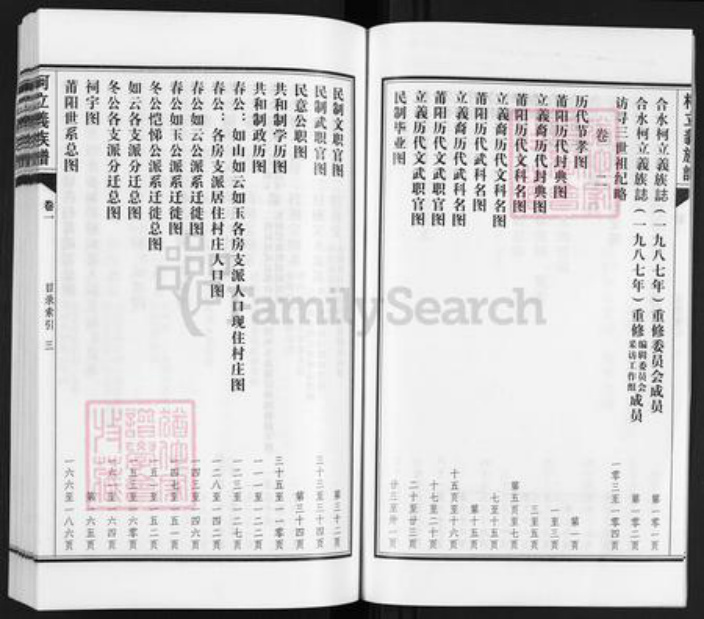 柯立義族譜
合永柯立義族誌（一九八七年）重修委员会成员 第一〇一页
合永柯立義族誌（一九八七年）重修编辑委员会采访工作组成员 第一〇二页
访寻三世祖纪略 一〇三至一〇四页
卷二
历代节孝图 第一页
莆阳历代封典图 一至三页
立義裔历代封典图 三至五页
莆阳历代文科名图 第五页至七页
立義裔历代文科名图 七至十五页
莆阳历代武科名图 第十五页
立義裔历代武科名图 十五页至十六页
莆阳历代文武职官图 十七至二十页
立義历代文武职官图 二十至廿三页
民制毕业图
民制文职官图 第三十二页
民制武职官图 三十三至三十四页
民意公职图 第三十四页
共和制学历图 三十五至一一〇页
共和制政历图 一一一至一一二页
春公：如山如云如玉各房支派人口现住村庄图 一一三至一二七页
春公：各房支派居住村庄人口图 一二八至一四二页
春公如云公派系迁徙图 一四三至一四六页
春公如玉公派系迁徙图 一四七至一五一页
冬公恺悌公派系迁徙总图
如云各支派分迁总图
冬公各支派分迁总图
祠宇图 第一六五页
莆阳世系总图 一六六至一八六页
柯立義族譜
卷一
目录索引
三
FamilySearch